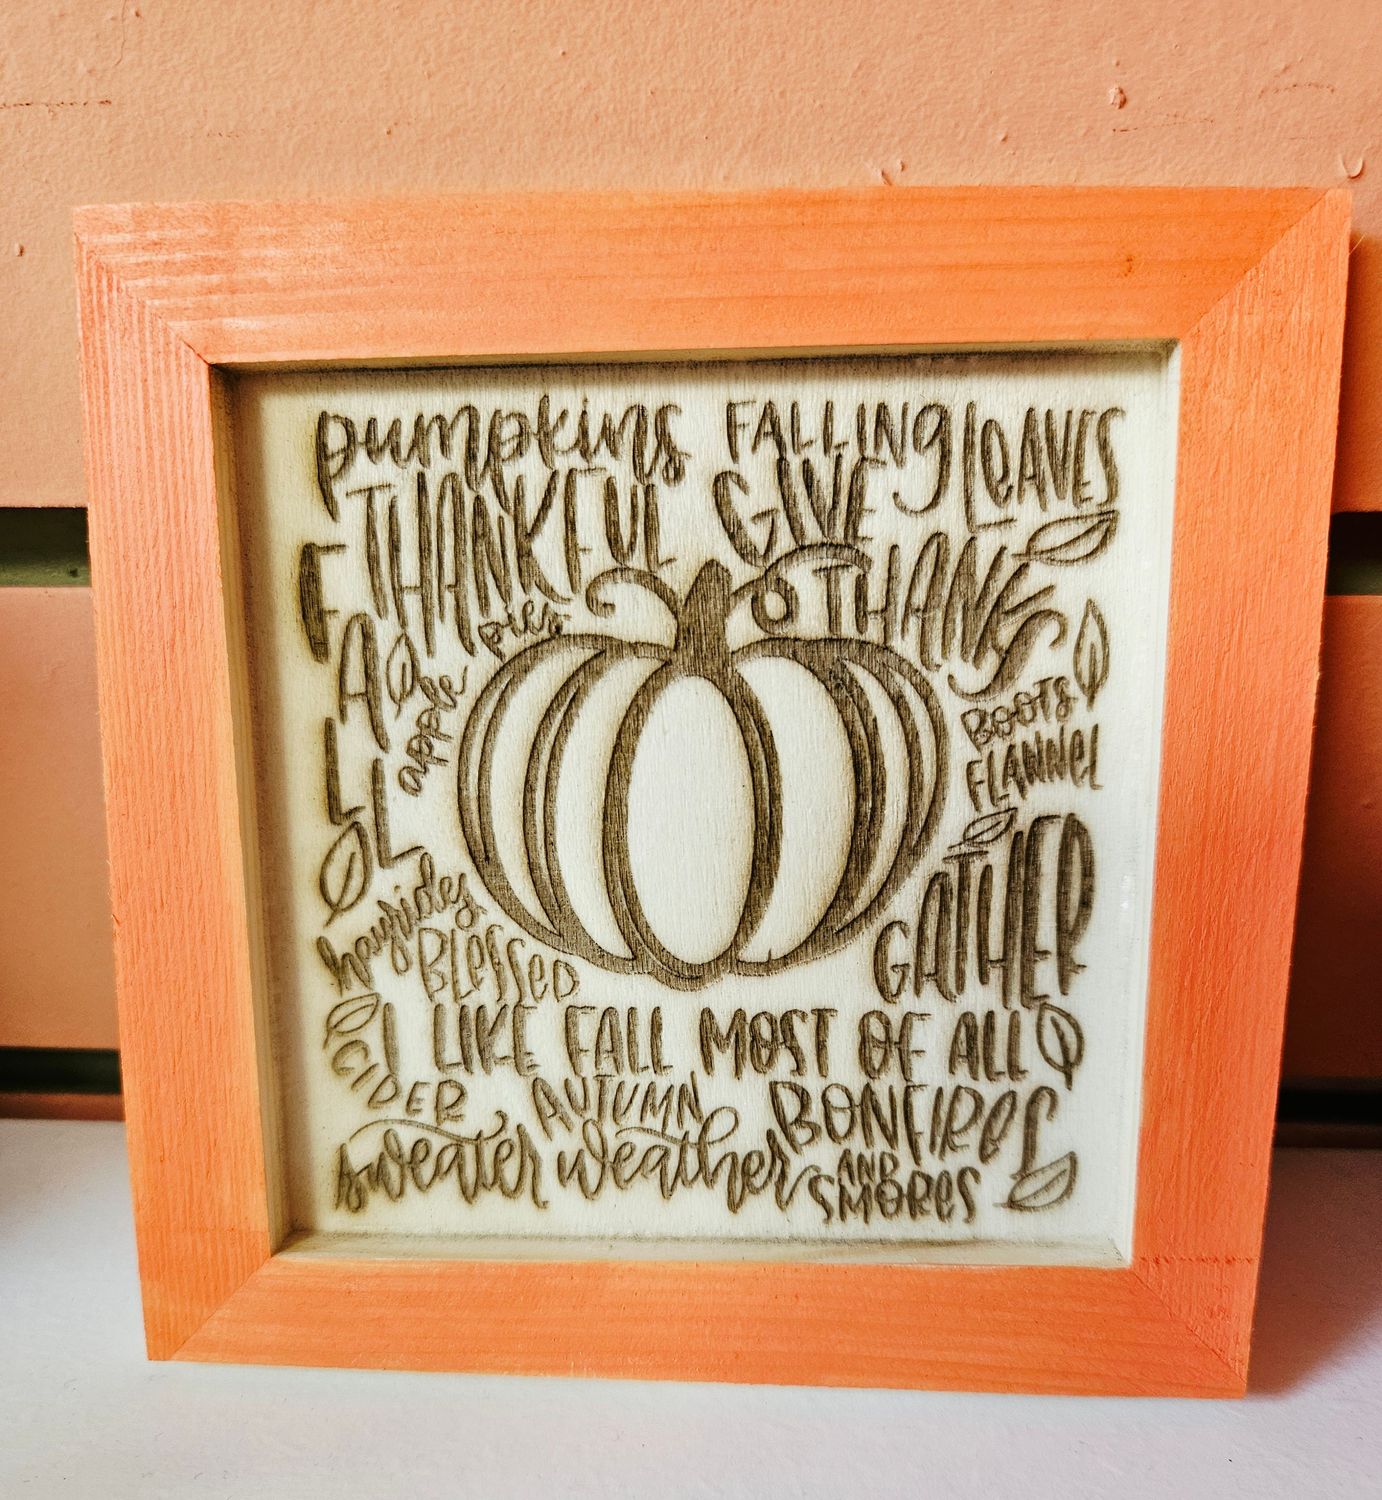 pumpkins FALLING LeAVES
THANKFUL GIVE
THANKS
FALL
apple pies
BOOTS
FLANNeL
GATHER
hayrides
BLeSSeD
I LIKE FALL MOST OF ALL
CIDER AUTUMN BONFIReS
sweater weather AND
SMOReS